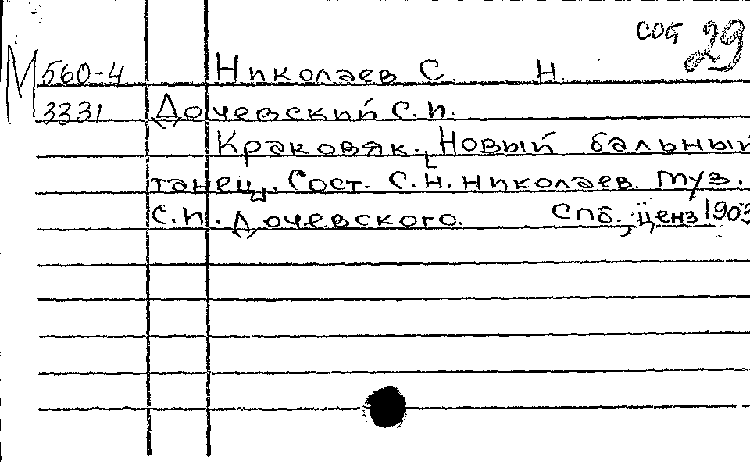 соб 29
М 560-4 Николаев С. Н.
3331 Дочевский С.П.
Краковяк. Новый бальный
танец. Сост. С.Н. Николаев. Муз.
С.П. Дочевского. Спб., ценз 1903